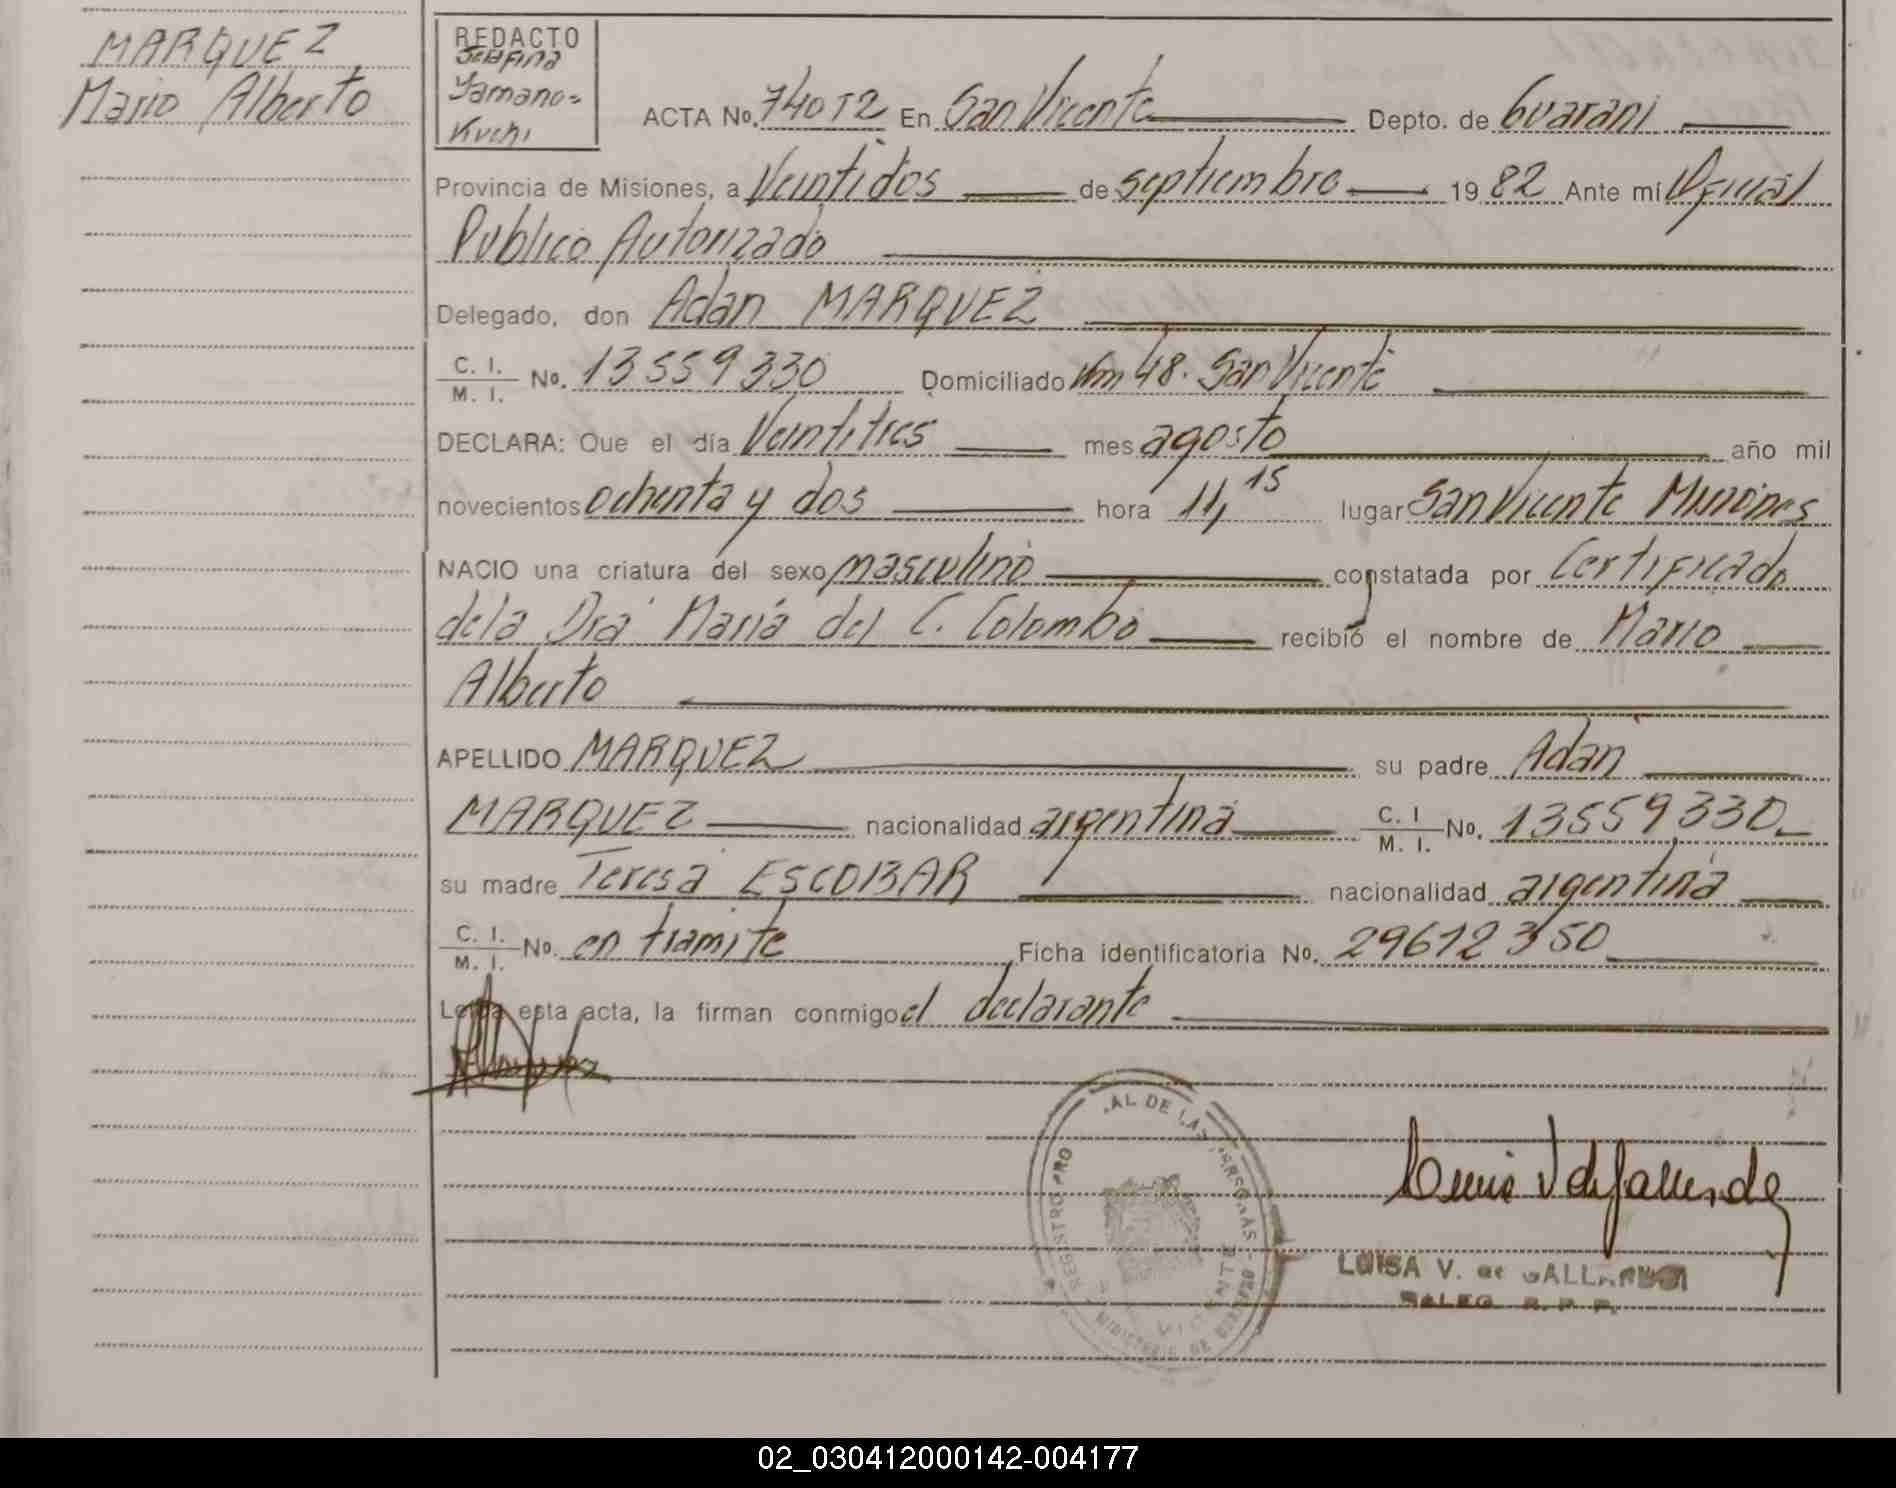 MARQUEZ,
Mario Alberto
REDACTO
Yamano=
Kuchi
ACTA No. 740T2 En San Vicente Depto. de Guarani
Provincia de Misiones, a Veintidos de septiembre 1982 Ante mí Oficial
Publico Autorizado
Delegado, don Adan MARQUEZ
C. I. / M. I. No. 13559330 Domiciliado Km 48. San Vicente
DECLARA: Que el día Veintitres mes agosto año mil
novecientos ochenta y dos hora 11,15 lugar San Vicente Misiones
NACIO una criatura del sexo masculino constatada por Certificado
de la Dra María del C. Colombo recibió el nombre de Mario
Alberto
APELLIDO MARQUEZ su padre Adan
MARQUEZ nacionalidad argentina C. I / M. I. No. 13559330_
su madre Teresa ESCOBAR nacionalidad argentina
C. I. / M. I. No. en tramite Ficha identificatoria No. 29612350
Leida esta acta, la firman conmigo el declarante
LUISA V. de GALLARDO
02_030412000142-004177